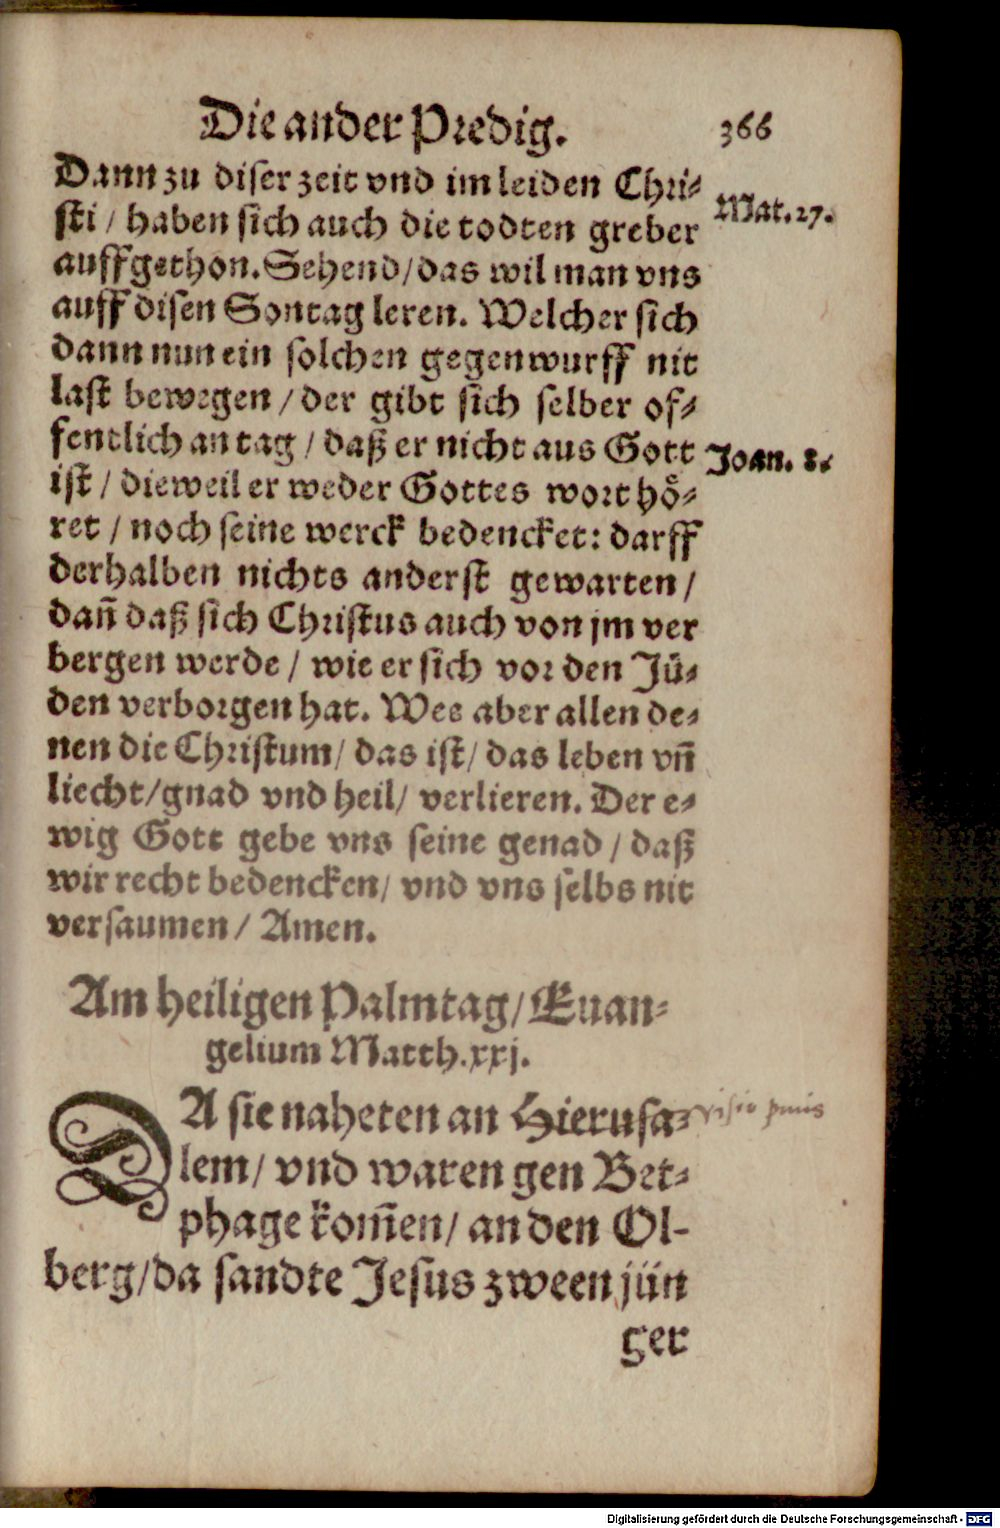 Die ander Predig. 366
Dann zu diser zeit vnd im leiden Chri-
sti / haben sich auch die todten greber Mat. 27.
auffgethon. Sehend/das wil man vns
auff disen Sontag leren. Welcher sich
dann nun ein solchen gegenwurff nit
last bewegen / der gibt sich selber of-
fentlich an tag / daß er nicht aus Gott Joan. 8.
ist / dieweil er weder Gottes wort hö-
ret / noch seine werck bedencket: darff
derhalben nichts anderst gewarten /
dañ daß sich Christus auch von jm ver
bergen werde / wie er sich vor den Jü-
den verborgen hat. Wee aber allen de-
nen die Christum / das ist / das leben vñ
liecht/gnad vnd heil/ verlieren. Der e-
wig Gott gebe vns seine genad / daß
wir recht bedencken/ vnd vns selbs nit
versaumen / Amen.
Am heiligen Palmtag/ Euan-
gelium Matth. xxj.
DA sie naheten an Hierusa-
lem/ vnd waren gen Bet-
phage kom̃en/ an den Ol-
berg/da sandte Jesus zween jün
ger
Digitalisierung gefördert durch die Deutsche Forschungsgemeinschaft - DFG